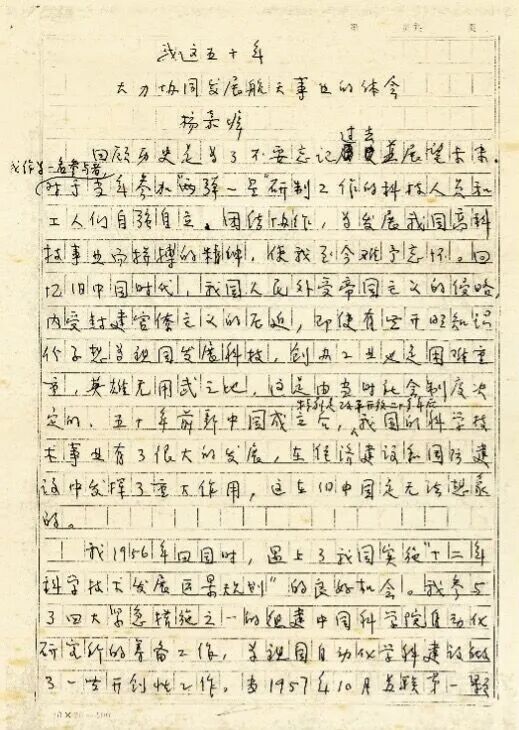 我这五十年
大力协同发展航天事业的体会
杨嘉墀
过去
回顾历史是为了不要忘记展望未来.
我作为一名参与者
对于当年参加"两弹一星"研制工作的科技人员和
工人们自强自立、团结协作,为发展我国高科
技事业而拼搏的精神,使我至今难于忘怀。回
忆旧中国时代,我国人民外受帝国主义的侵略,
内受封建官僚主义的压迫,即使有些开明知识
份子想为祖国发展科技,创办工业也是困难重
重,英雄无用武之地,这是由当时社会制度决
特别是改革开放二十年后
定的。五十年前新中国成立后,我国的科学技
术事业有了很大的发展,在经济建设和国防建
设中发挥了重大作用,这在旧中国是无法想象
的。
我1956年回国时,遇上了我国实施"十二年
科学技术发展远景规划"的良好机会。我参与
了四大紧急措施之一的组建中国科学院自动化
研究所的筹备工作,为我国自动化学科建设做
了一些开创性工作。当1957年10月苏联第一颗